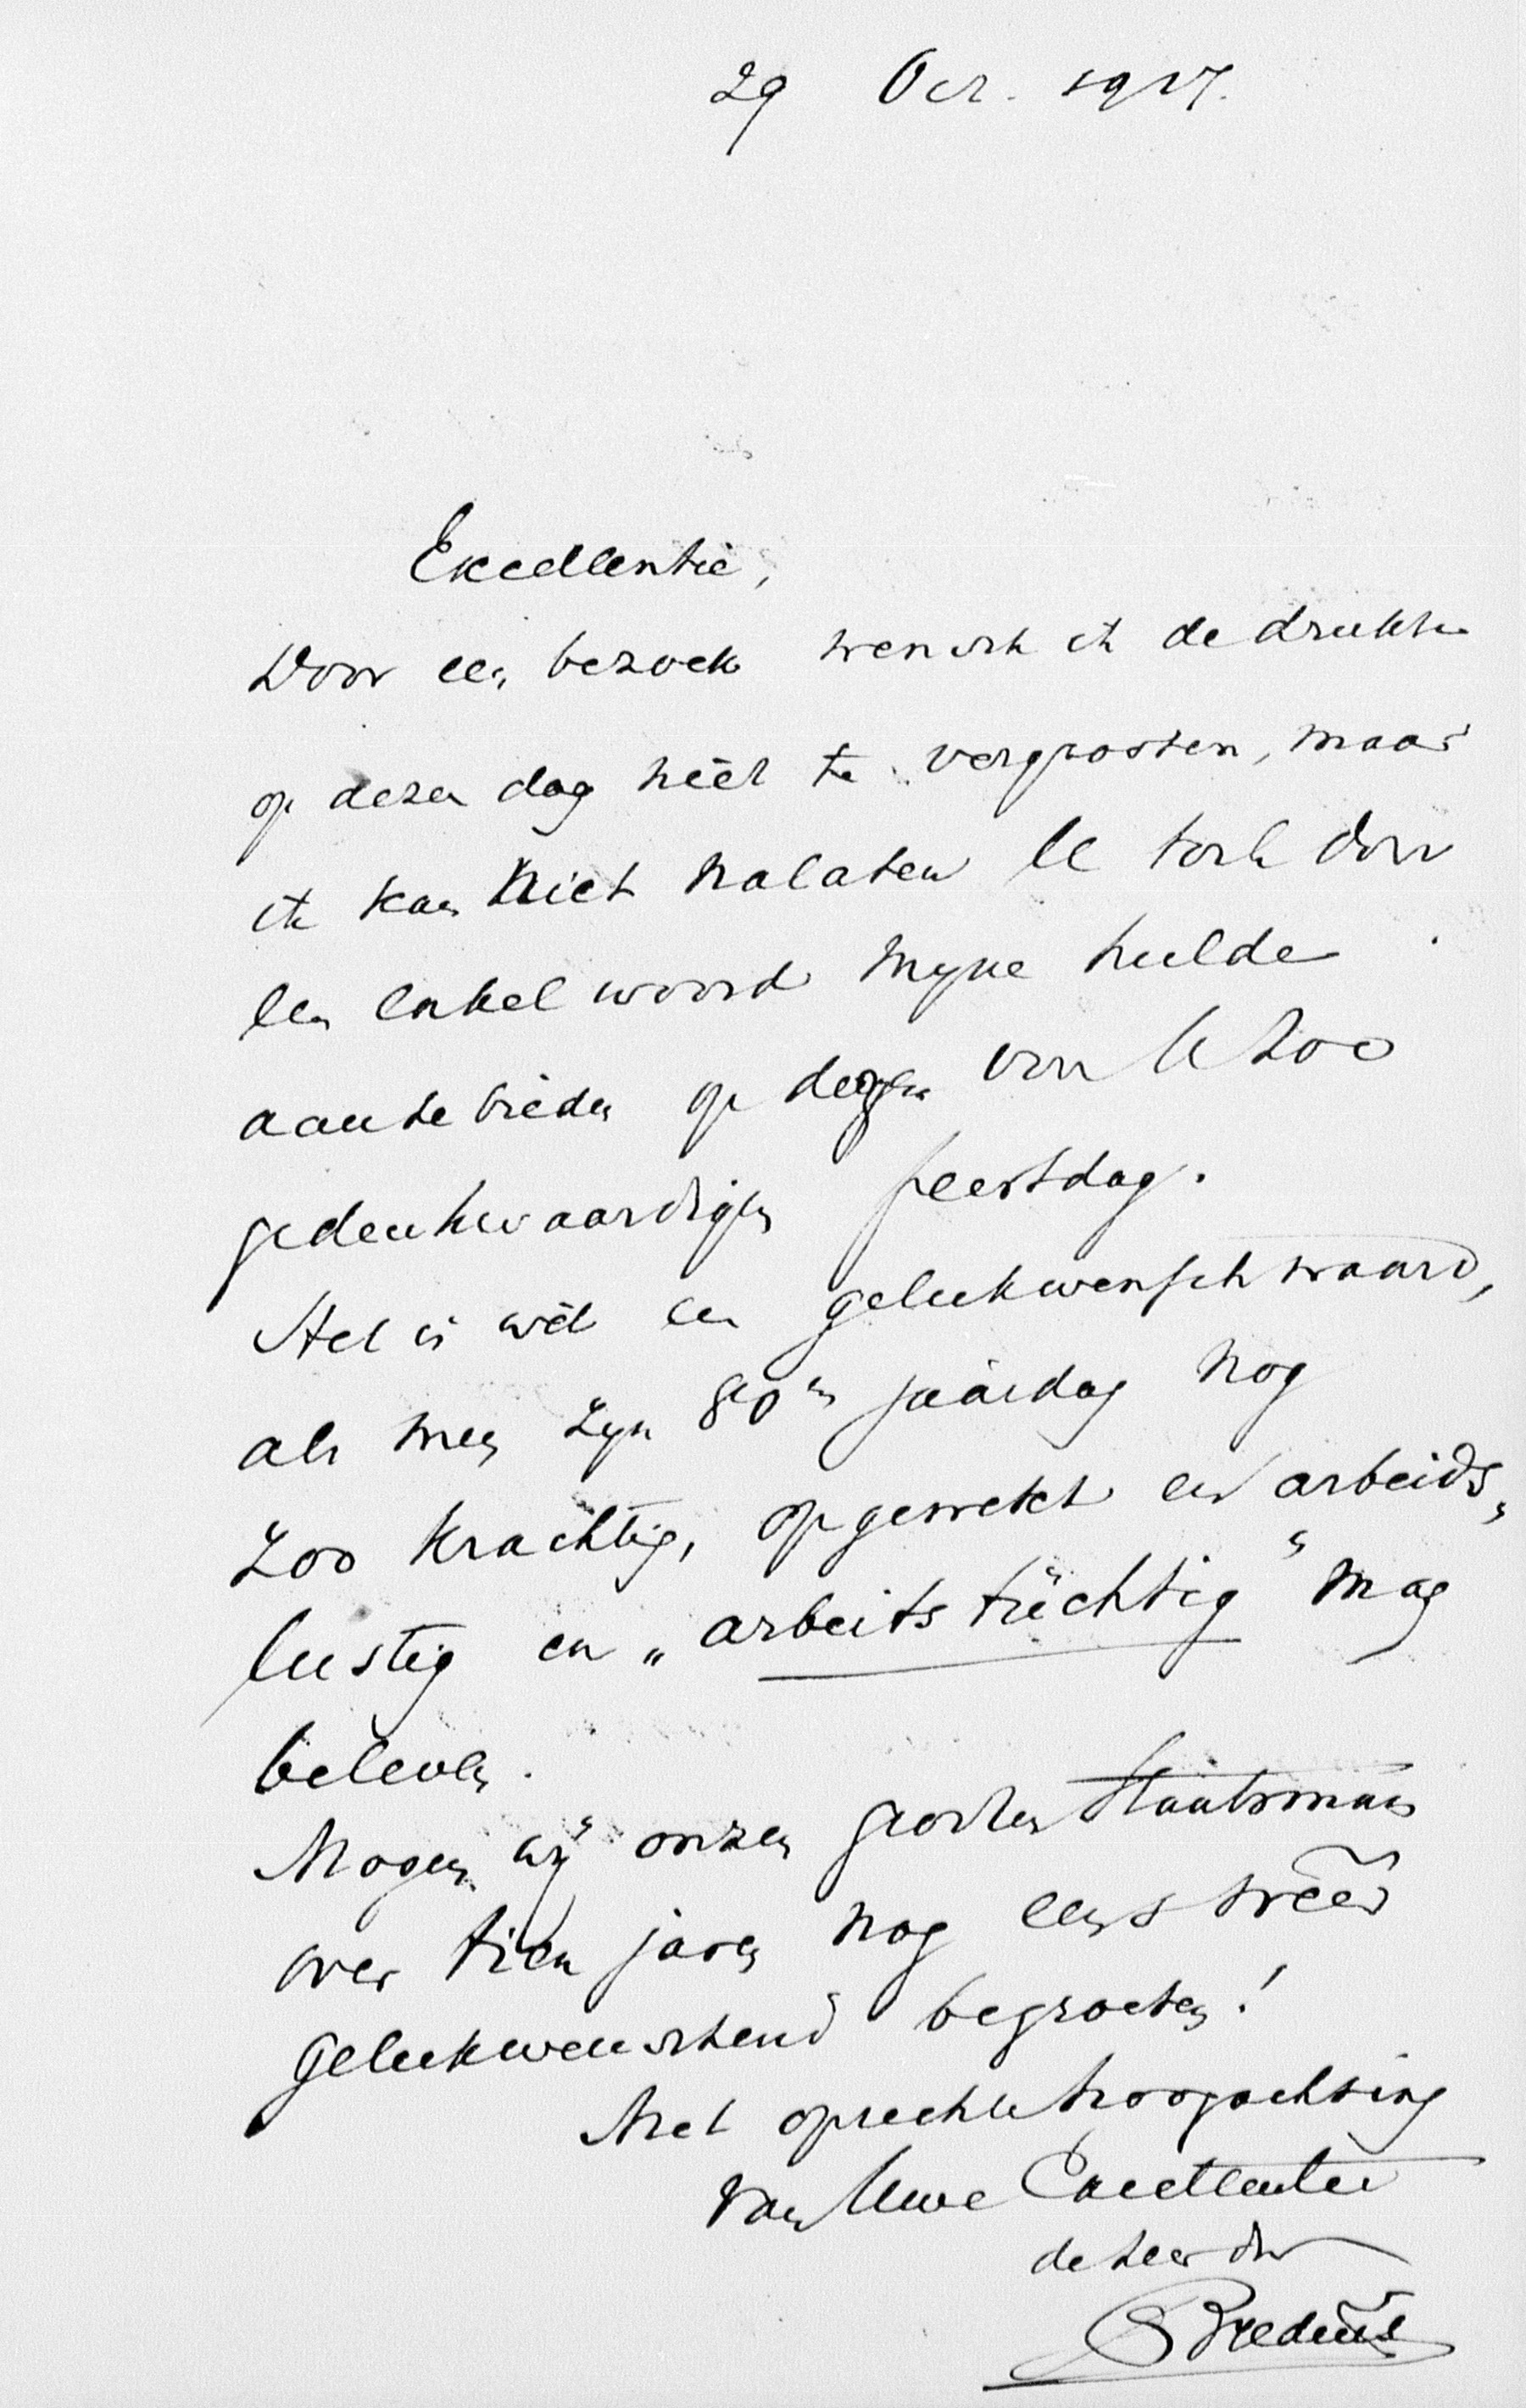 29 Oct. 1917.
Excellentie,
Door een bezoek wensch ik de drukte
op dezen dag niet te vergrooten, maar
ik kan niet nalaten U toch door
een enkel woord mijne hulde
aan te bieden op dezen voor U zoo
gedenkwaardigen feestdag.
Het is wèl een gelukwensch waard,
als men zijn 80en jaardag nog
zoo krachtig, opgewekt en arbeids„
lustig en „arbeitstüchtig" mag
beleven.
Mogen wij onzen grooten Staatsman
over tien jaren nog eens weêr
gelukwenschend begroeten!
Met oprechte hoogachting
van Uwe Excellentie
de zeer dw
Bredius